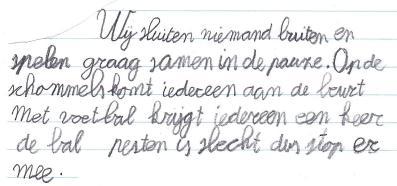 Wij sluiten niemand buiten en
spelen graag samen in de pauze. Op de
schommels komt iedereen aan de beurt
Met voetbal krijgt iedereen een keer
de bal pesten is slecht dus stop er
mee.